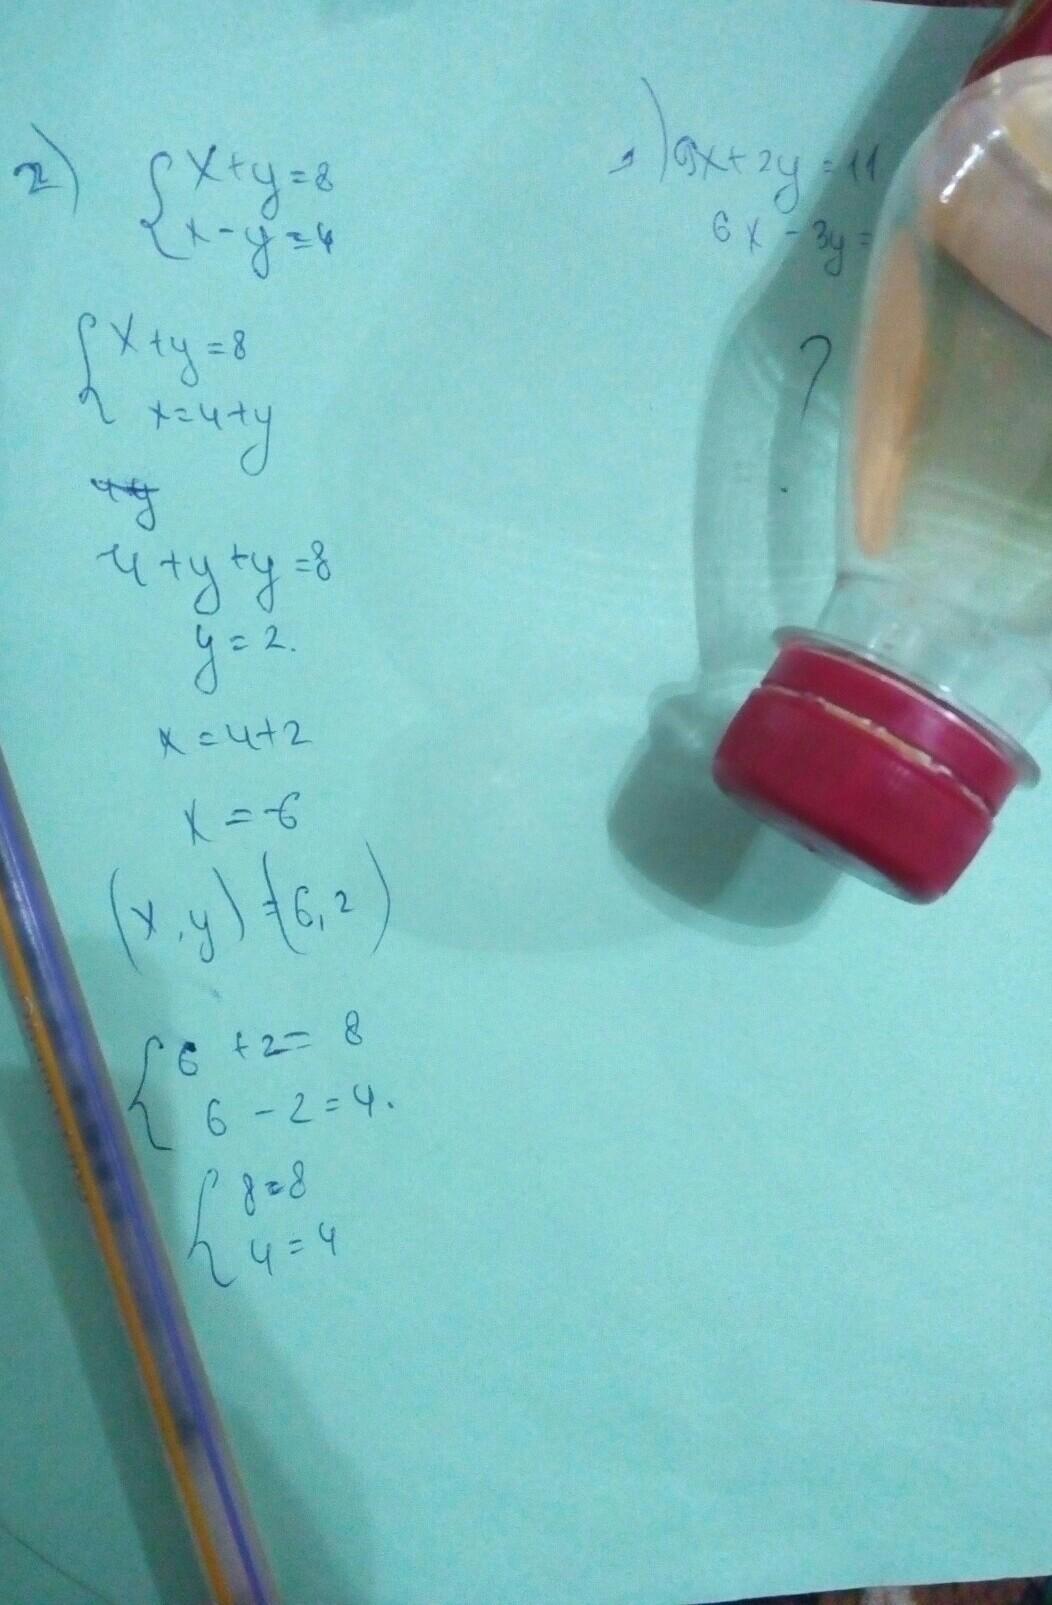 2) { x+y=8
x-y=4
{ x+y=8
x=4+y
4+y+y=8
y=2.
x=4+2
x=-6
(x,y)=(6,2)
{ 6+2=8
6-2=4.
{ 8=8
4=4
1) 9x+2y=11
6x-3y=
?